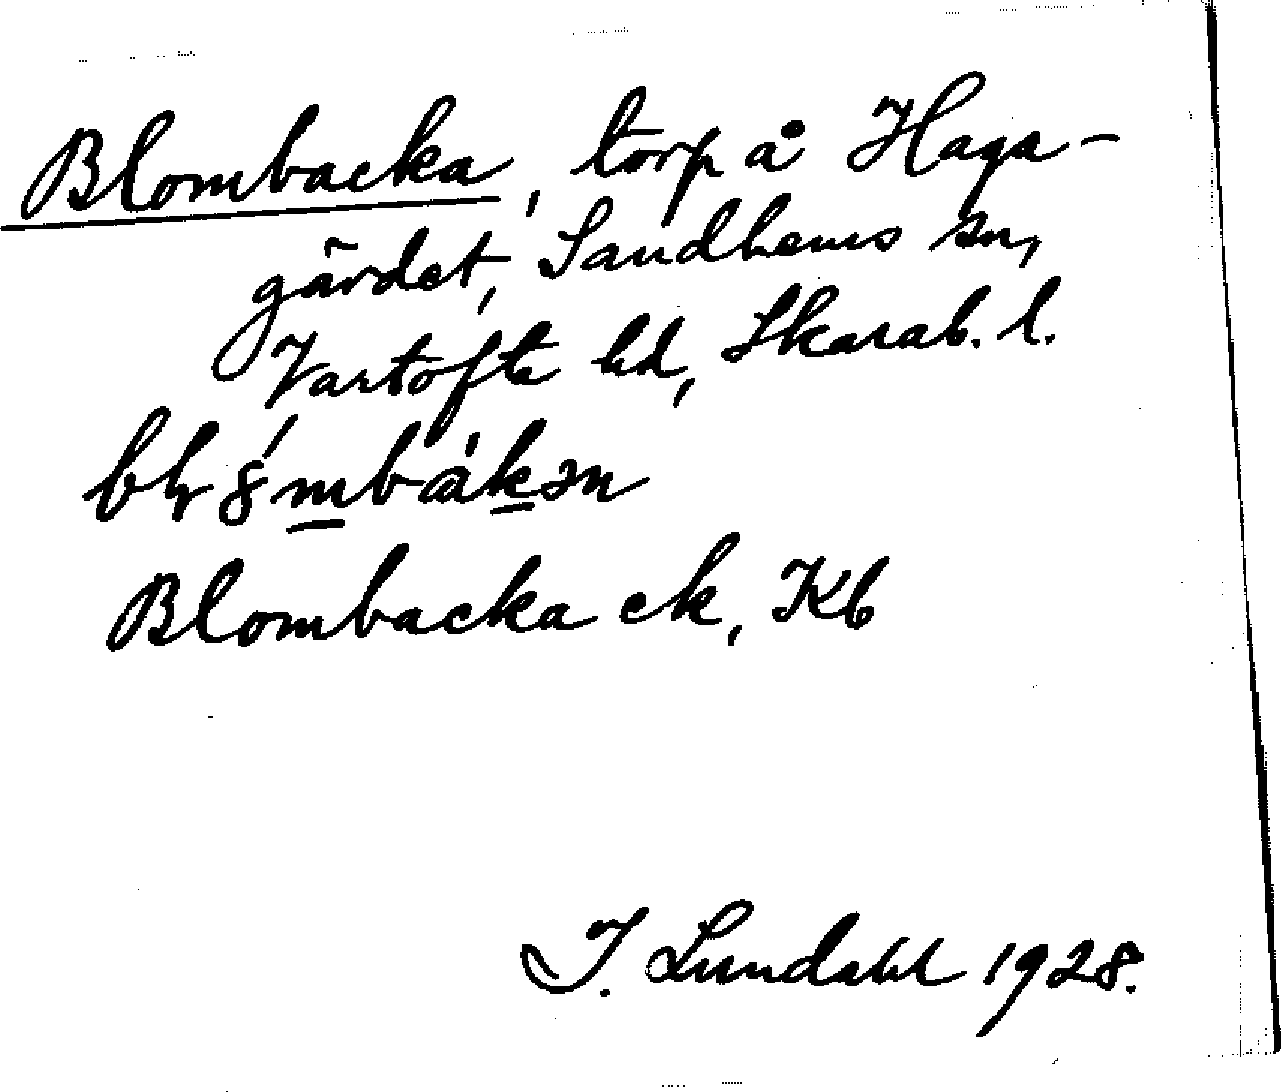 Blombacka, torp å Haga-
gärdet, Sandhems sn,
Vartofte hd, Skarab. l.
Blombacka ek, Kb
I. Lundahl 1928.